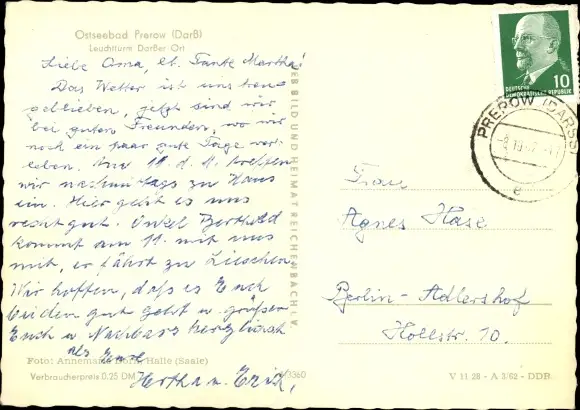 Ostseebad Prerow (Darß)
Leuchtturm Darßer Ort
Liebe Oma, lb. Tante Martha!
Das Wetter ist uns treu
geblieben, jetzt sind wir
bei guten Freunden, wo wir
noch ein paar gute Tage ver-
leben. Am 11. d. M. treffen
wir nachmittags zu Haus
ein. Hier geht es uns
recht gut. Onkel Berthold
kommt am 11. mit uns
mit, er fährt zu Lieschen.
Wir hoffen, daß es Euch
beiden gut geht u. grüßen
Euch u. Nachbars herzlichst
als Eure
Hertha u. Erich.
Foto: Annemarie Born, Halle (Saale)
Verbraucherpreis 0,25 DM
3360
VEB BILD UND HEIMAT REICHENBACH I. V.
10
DEUTSCHE
DEMOKRATISCHE REPUBLIK
PREROW (DARSS)
e
Frau
Agnes Hase
Berlin-Adlershof
Hollstr. 10.
V 11 28 - A 3/62 - DDR